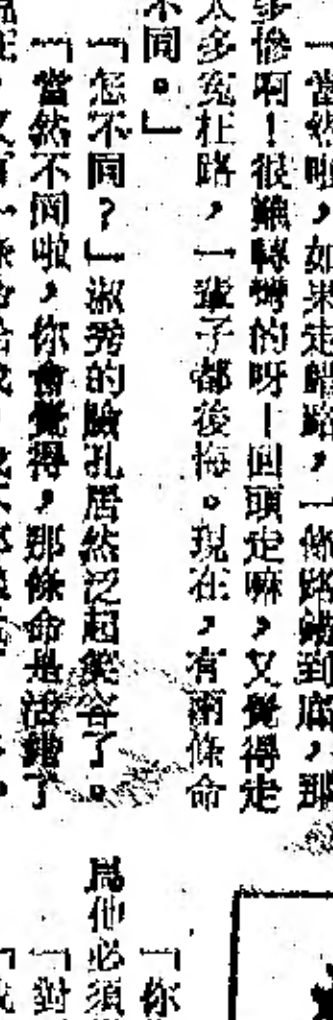 「當然啦，如果走錯路，一條路錯到底，那
多慘啊！很難轉彎的呀！回頭走嘛，又覺得走
太多冤枉路，一輩子都後悔。現在，有兩條命
不同。」
「怎不同？」淑秀的臉孔居然泛起笑容了。
「當然不同啦，你會覺得，那條命是活錯了
「你
為他必須
「對